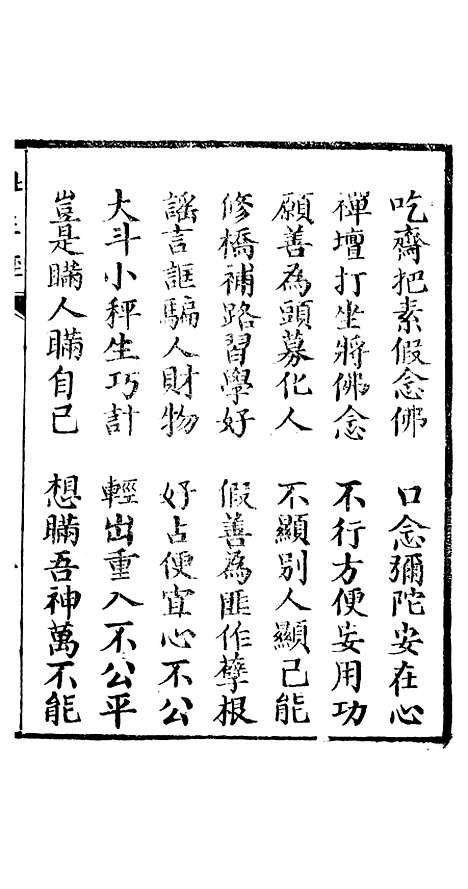 吃齋把素假念佛　口念彌陀安在心
禅壇打坐將佛念　不行方便妄用功
願善為頭募化人　不顯别人顯己能
修橋補路習學好　假善為匪作孽根
謡言誆騙人財物　好占便宜心不公
大斗小秤生巧計　輕出重入不公平
豈是瞞人瞞自己　想瞞吾神萬不能